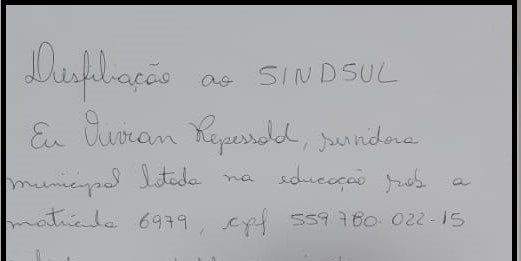 Desfiliação ao SINDSUL
Eu Vivian Repessold, servidora
municipal lotada na educação sob a
matrícula 6979, cpf 559780.022-15